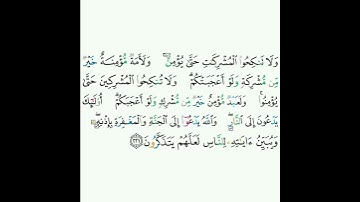 وَلَا تَنكِحُوا۟ ٱلْمُشْرِكَٰتِ حَتَّىٰ يُؤْمِنَّ ۚ وَلَأَمَةٌ مُّؤْمِنَةٌ خَيْرٌ
مِّن مُّشْرِكَةٍ وَلَوْ أَعْجَبَتْكُمْ ۗ وَلَا تُنكِحُوا۟ ٱلْمُشْرِكِينَ حَتَّىٰ
يُؤْمِنُوا۟ ۚ وَلَعَبْدٌ مُّؤْمِنٌ خَيْرٌ مِّن مُّشْرِكٍ وَلَوْ أَعْجَبَكُمْ ۗ أُو۟لَٰٓئِكَ
يَدْعُونَ إِلَى ٱلنَّارِ ۖ وَٱللَّهُ يَدْعُوٓا۟ إِلَى ٱلْجَنَّةِ وَٱلْمَغْفِرَةِ بِإِذْنِهِۦ ۖ
وَيُبَيِّنُ ءَايَٰتِهِۦ لِلنَّاسِ لَعَلَّهُمْ يَتَذَكَّرُونَ ﴿٢٢١﴾